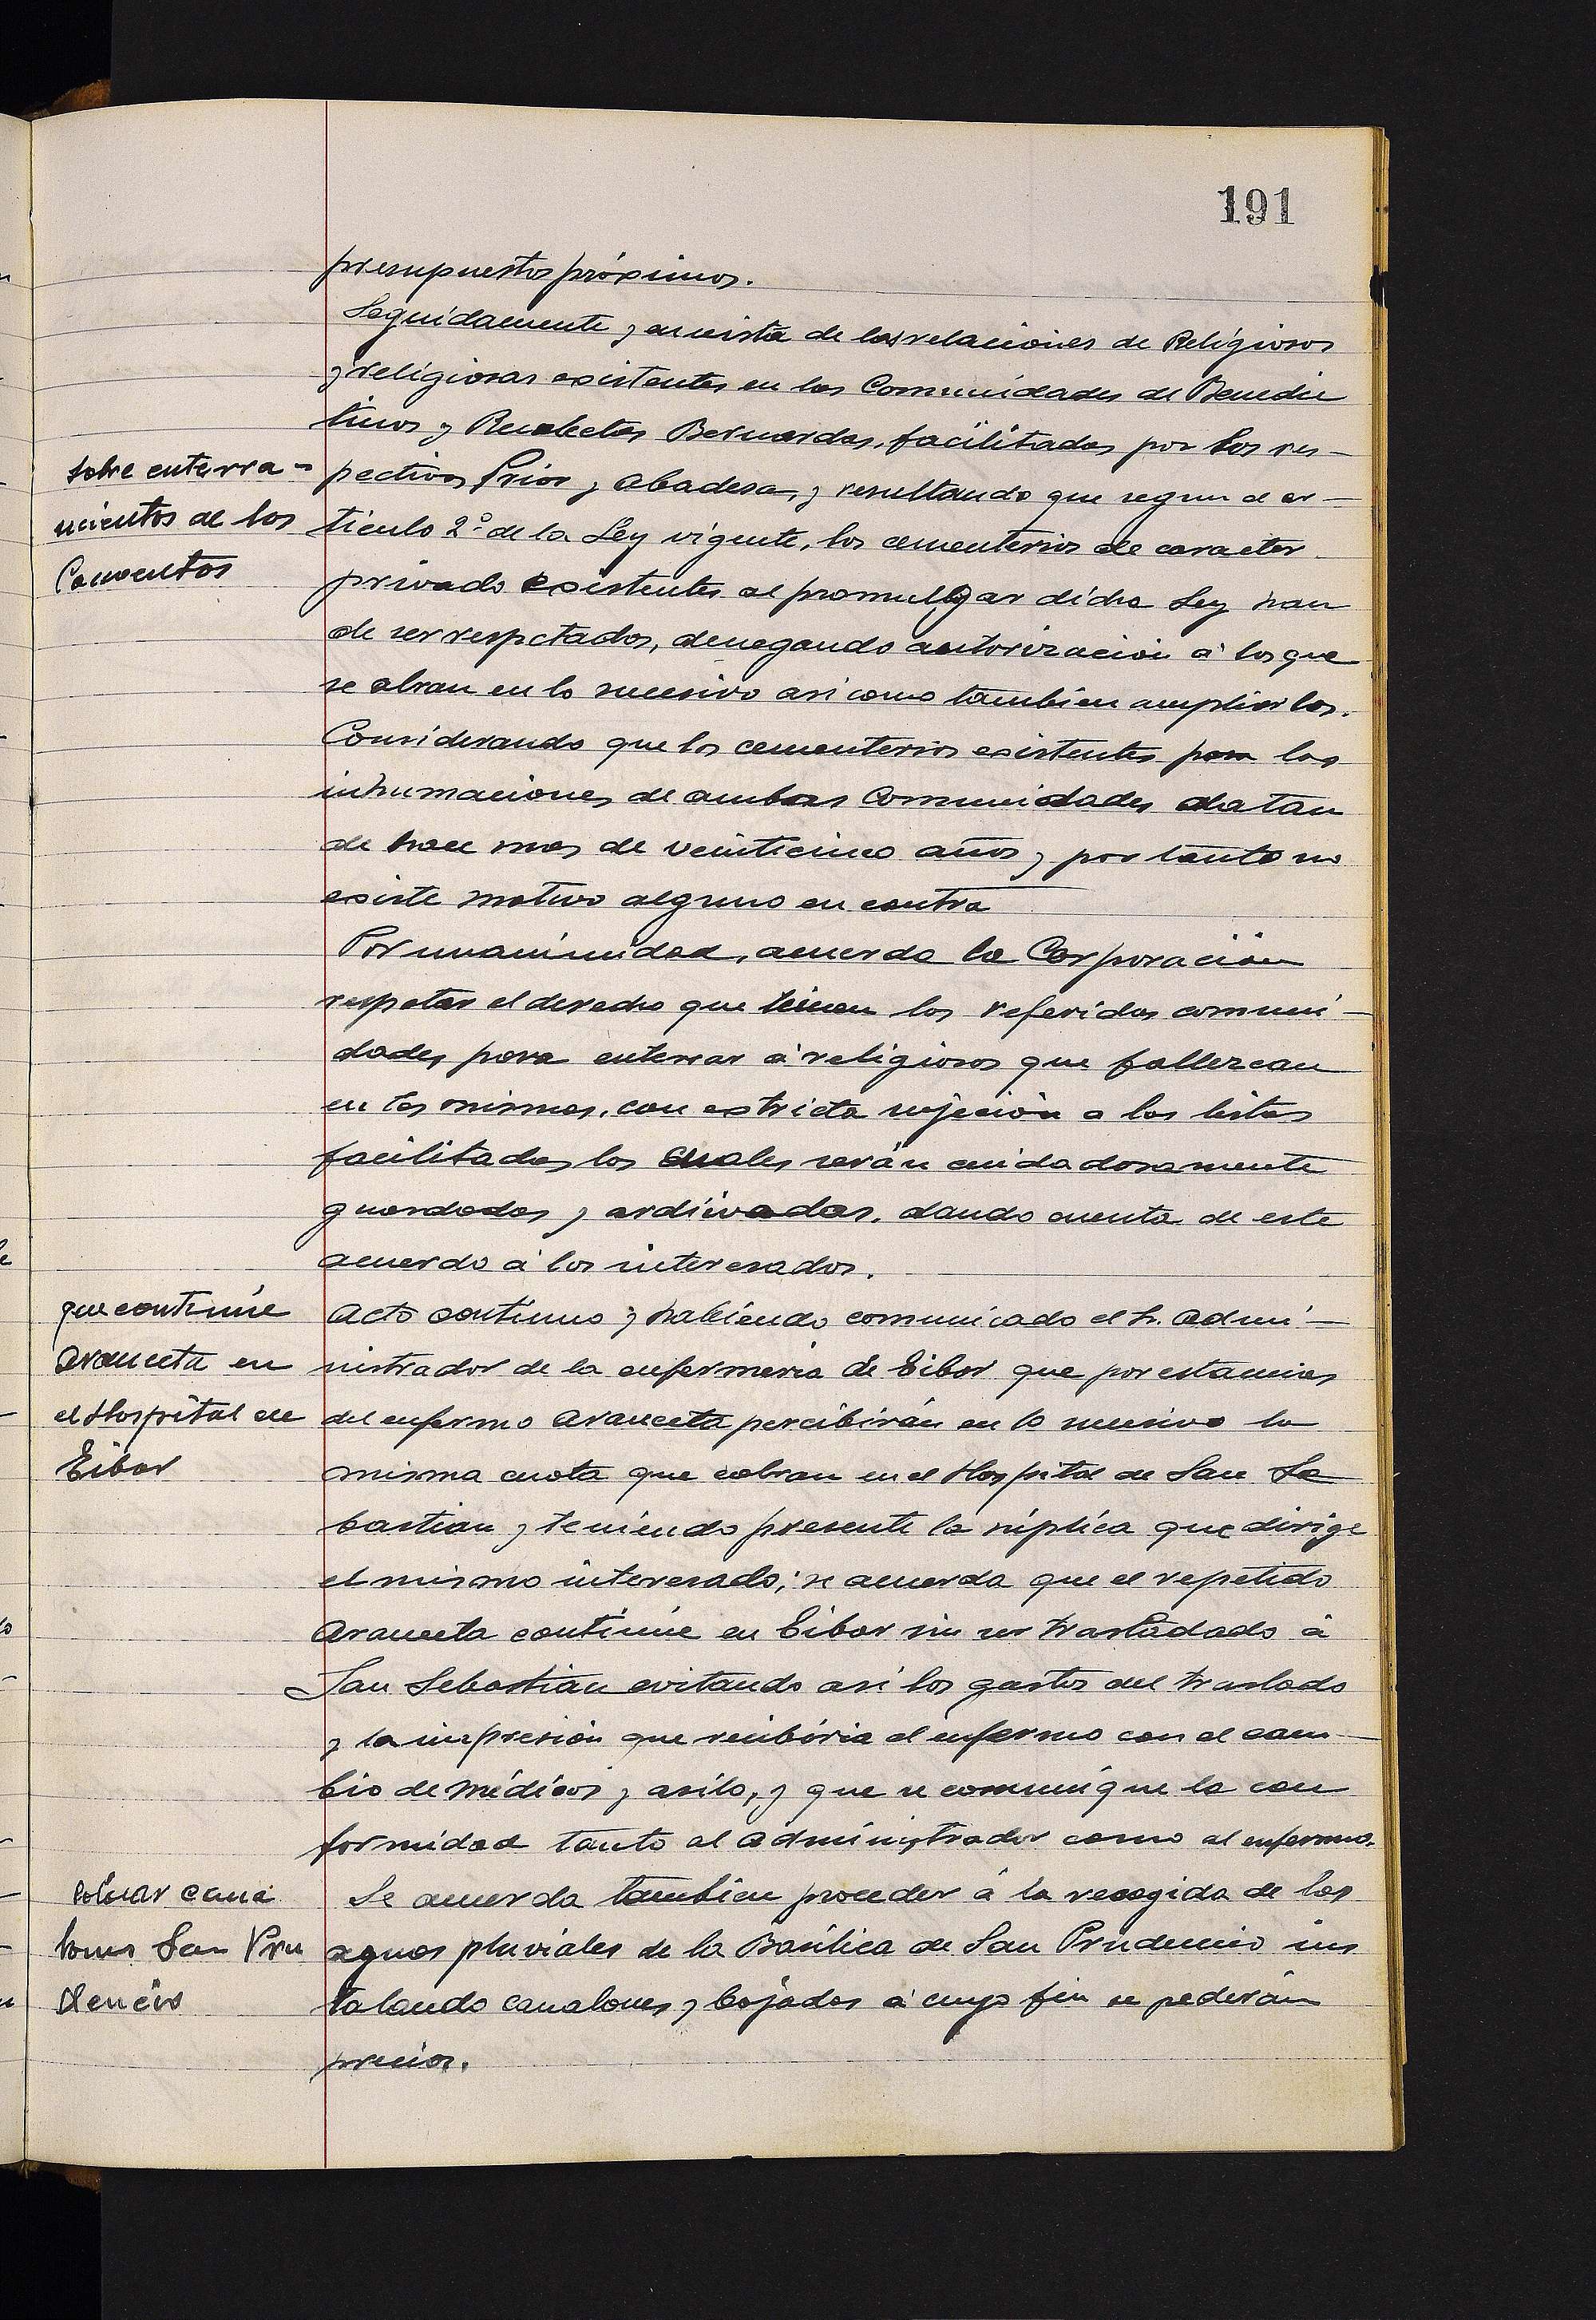 191
presupuestos próximos.
Seguidamente y en vista de las relaciones de Religiosos
y religiosas existentes en las Comunidades de Benedic
tinos y Recoletas Bernardas, facilitadas por los res-
sobre enterra-
pectivos Prior y Abadesa, y resultando que segun el ar-
mientos de los
ticulo 2º de la Ley vigente, los cementerios de caracter
Conventos
privado existentes al promulgar dicha Ley han
de ser respetados, denegando autorización á los que
se abran en lo sucesivo asi como tambien ampliarlos.
Considerando que los cementerios existentes para las
inhumaciones de ambas Comunidades datan
de hace mas de veinticinco años y por tanto no
existe motivo alguno en contra
Por unanimidad, acuerda la Corporación
respetar el derecho que tienen las referidas comuni-
dades para enterrar á religiosos que fallezcan
en las mismas, con estricta sujeción a las listas
facilitadas las cuales serán cuidadosamente
guardadas y archivadas, dando cuenta de este
acuerdo á los interesados.
que continúe
Acto continuo y habiendo comunicado el Sr. Admi-
Aranceta en
nistrador de la enfermeria de Eibar que por estancias
el Hospital de
del enfermo Aranceta percibirán en lo sucesivo la
Eibar
misma cuota que cobran en el Hospital de San Se
bastian y teniendo presente la súplica que dirige
el mismo interesado; se acuerda que el repetido
Aranceta continúe en Eibar sin ser trasladado á
San Sebastián evitando asi los gastos del traslado
y la impresión que recibiria el enfermo con el cam-
bio de médicos y asilo, y que se comunique la con
formidad tanto al administrador como al enfermo.
colocar cana
Se acuerda tambien proceder á la recogida de las
lones San Pru
aguas pluviales de la Basilica de San Prudencio ins
dencio
talando canalones y bajadas á cuyo fin se pedirán
precios.